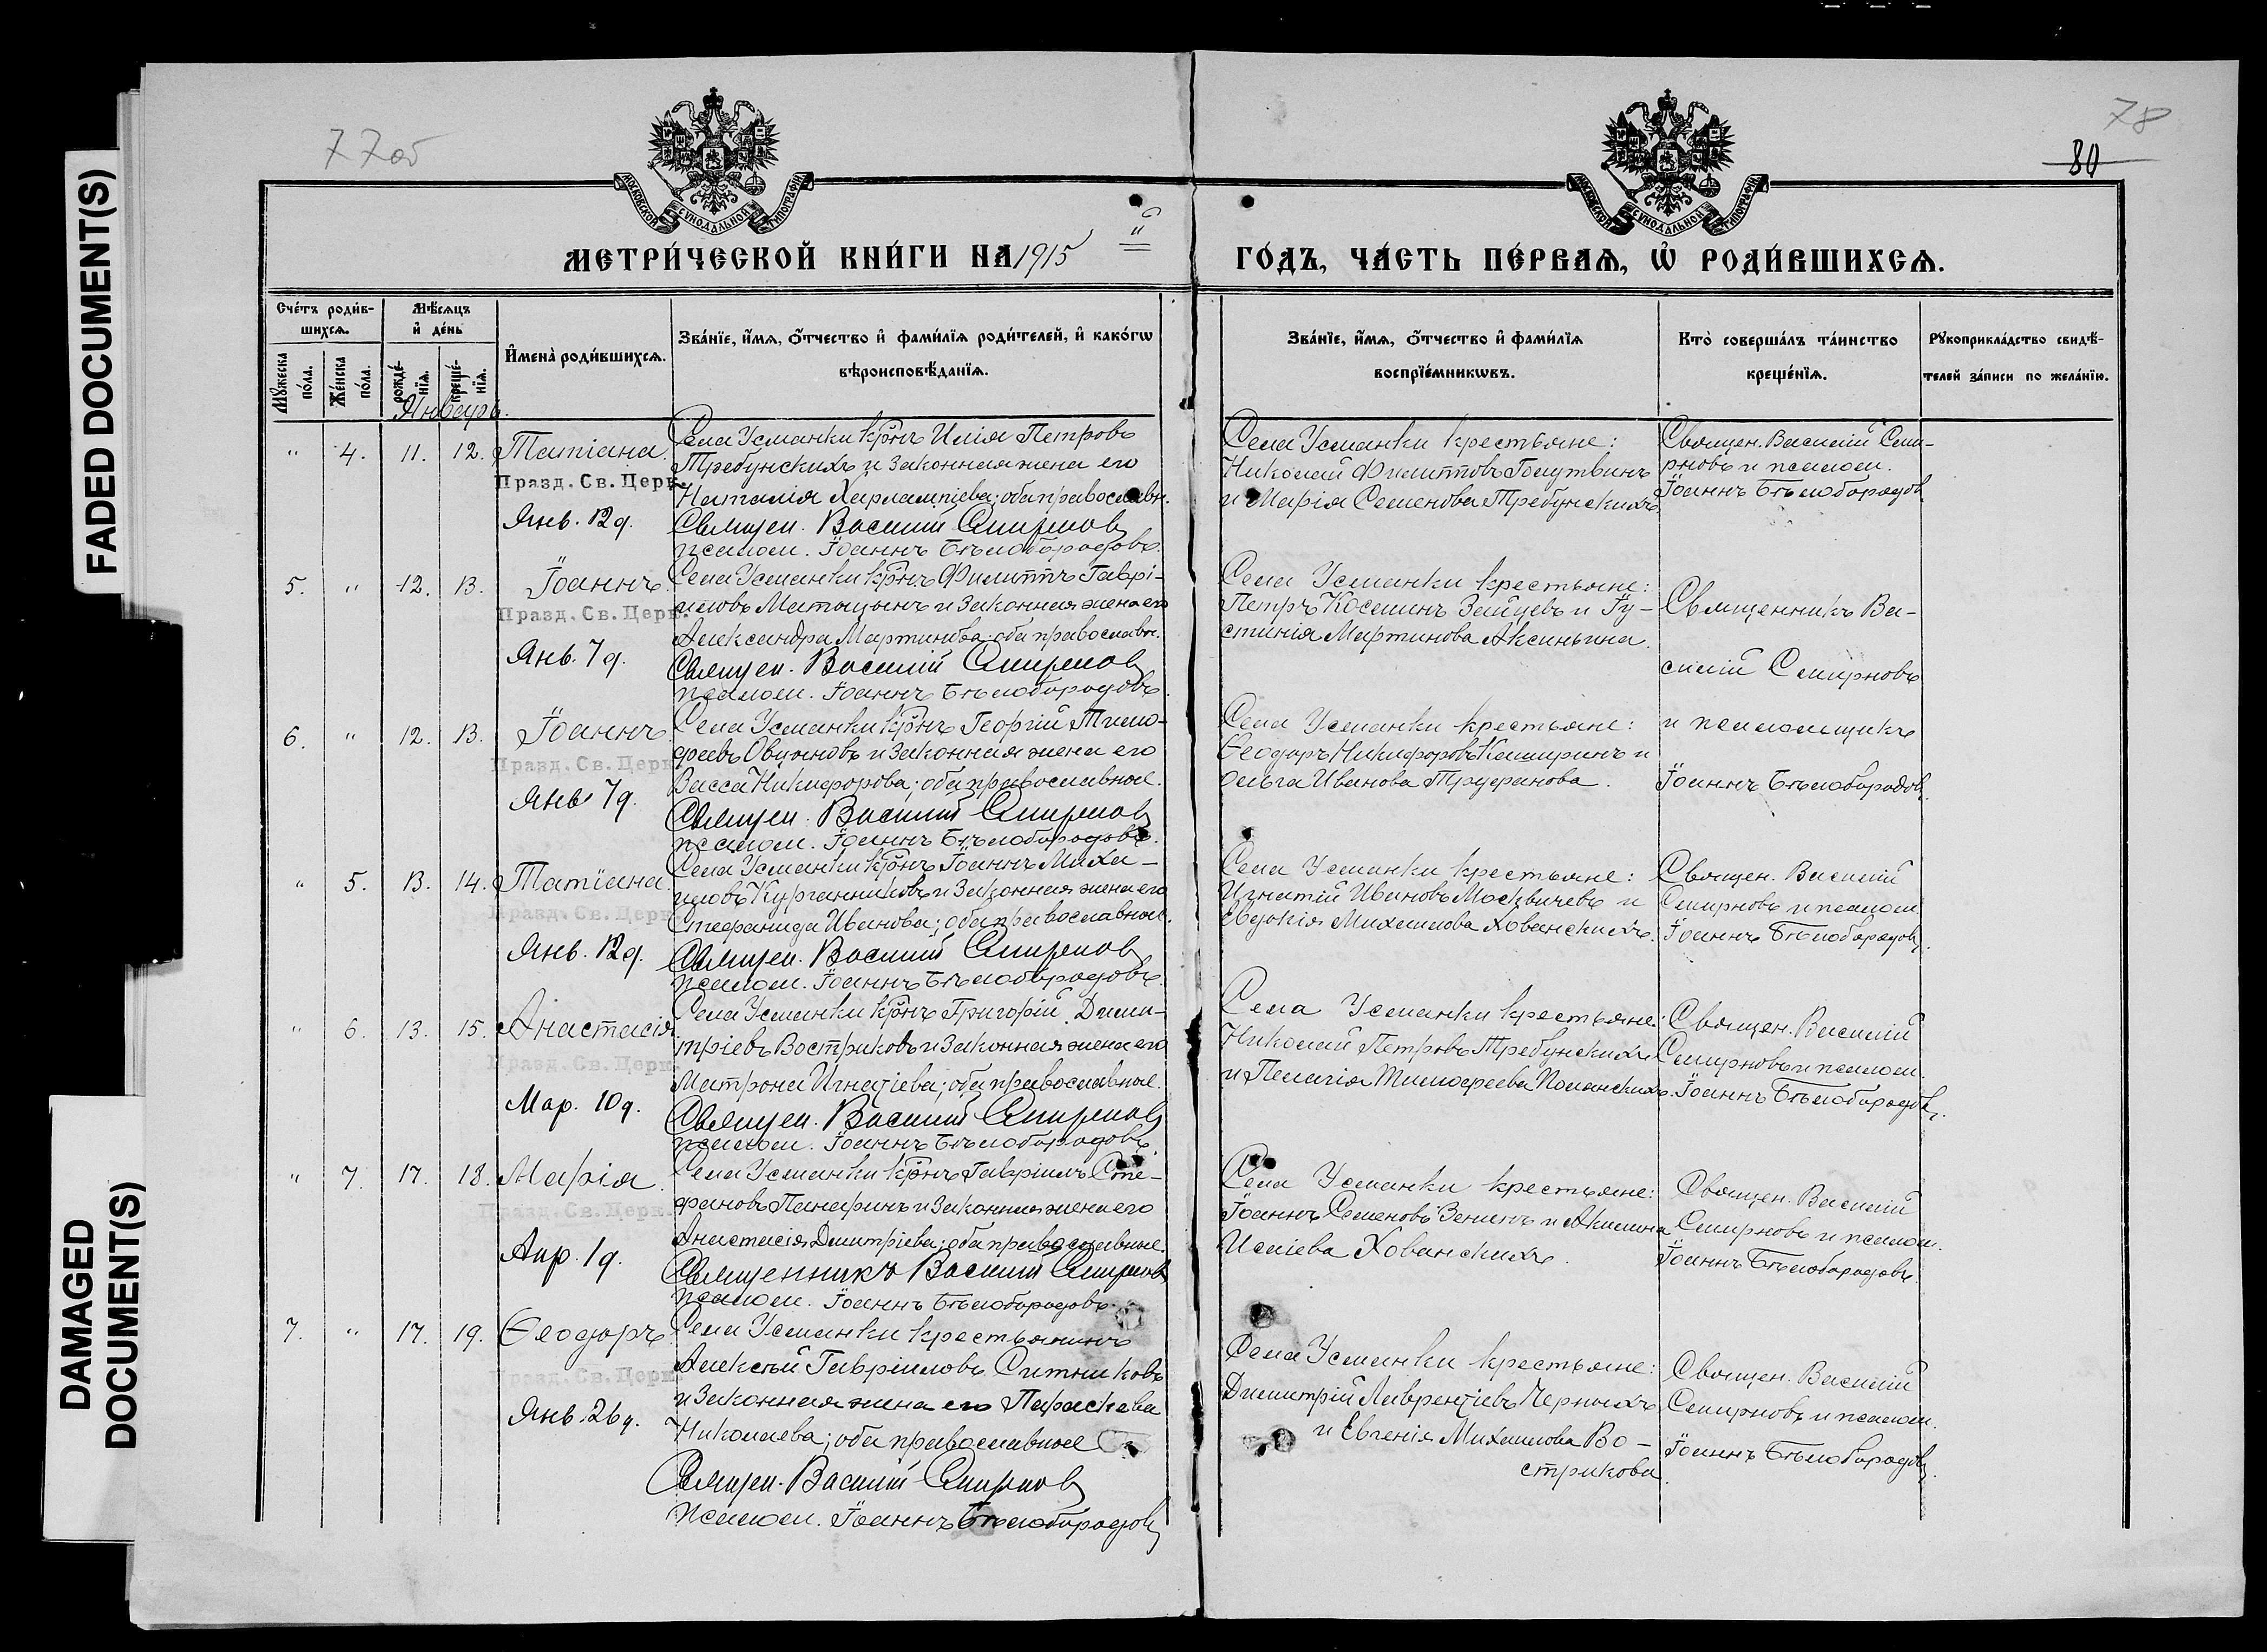 FADED DOCUMENT(S)
DAMAGED
DOCUMENT(S)
77об
78
80
МОСКОВСКОЙ СѴНОДАЛЬНОЙ ТИПОГРАФІИ
МОСКОВСКОЙ СѴНОДАЛЬНОЙ ТИПОГРАФІИ
МЕТРИ́ЧЕСКОЙ КНИ́ГИ НА 1915
ГО́ДЪ, ЧА́СТЬ ПЕ́РВАѦ, Ѡ҆ РОДИ́ВШИХСѦ.
Сче́тъ роди́в-
шихсѧ.
Мѣ́сѧцъ
и҆ де́нь
Мꙋ́жеска
по́ла.
Же́нска
по́ла.
рожде́-
нїѧ.
креще́-
нїѧ.
И҆мена̀ роди́вшихсѧ.
Зва́нїе, и҆́мѧ, ѻ҆́тчество и҆ фами́лїѧ роди́телей, и҆ како́гѡ
вѣроисповѣ́данїѧ.
Зва́нїе, и҆́мѧ, ѻ҆́тчество и҆ фами́лїѧ
воспрїе́мникѡвъ.
Кто̀ соверша́лъ та́инство
креще́нїѧ.
Рꙋкоприкла́дство свидѣ́-
телей за́писи по жела́нїю.
Январь.
" 4. 11. 12. Татіана.
Празд. Св. Церк.
Янв. 12 д.
Села Усманки кр-нъ Илія Петровъ
Требунскихъ и законная жена его
Наталія Харлампіева; оба православн.
Священ. Василій Смирновъ
псалом. Іоаннъ Бѣлобородовъ.
Села Усманки крестьяне:
Николай Филипповъ Голутвинъ
и Марія Семенова Требунскихъ
Священ. Василій Сми-
рновъ и псалом.
Іоаннъ Бѣлобородовъ
5. " 12. 13. Іоаннъ.
Празд. Св. Церк.
Янв. 7 д.
Села Усманки кр-нъ Филиппъ Гаврі-
иловъ Матыцынъ и законная жена его
Александра Мартинова; оба православн.
Священ. Василій Смирновъ
псалом. Іоаннъ Бѣлобородовъ.
Села Усманки крестьяне:
Петръ Косминъ Зайцевъ и Іу-
стинія Мартинова Аксиньина.
Священникъ Ва-
силій Смирновъ
6. " 12. 13. Іоаннъ
Празд. Св. Церк.
Янв. 7 д.
Села Усманки кр-нъ Георгій Тимо-
феевъ Овчинновъ и законная жена его
Васса Никифорова; оба православные.
Священ. Василій Смирновъ
псалом. Іоаннъ Бѣлобородовъ.
Села Усманки крестьяне:
Ѳеодоръ Никифоровъ Каширинъ и
Ольга Иванова Труфанова.
и псаломщикъ
Іоаннъ Бѣлобородовъ.
" 5. 13. 14. Татіана.
Празд. Св. Церк.
Янв. 12 д.
Села Усманки кр-нъ Іоаннъ Миха-
иловъ Курганниковъ и законная жена его
Стефанида Иванова; оба православные.
Священ. Василій Смирновъ
псалом. Іоаннъ Бѣлобородовъ.
Села Усманки крестьяне:
Игнатій Ивановъ Москвичевъ и
Евдокія Михаилова Хованскихъ.
Священ. Василій
Смирновъ и псалом.
Іоаннъ Бѣлобородовъ.
" 6. 13. 15. Анастасія
Празд. Св. Церк.
Мар. 10 д.
Села Усманки кр-нъ Григорій Дими-
тріевъ Востриковъ и законная жена его
Матрона Игнатіева; оба православные.
Священ. Василій Смирновъ
псалом. Іоаннъ Бѣлобородовъ.
Села Усманки крестьяне:
Николай Петровъ Требунскихъ
и Пелагія Тимофеева Полянскихъ.
Священ. Василій
Смирновъ и псалом.
Іоаннъ Бѣлобородовъ.
" 7. 17. 18. Марія.
Празд. Св. Церк.
Апр. 1 д.
Села Усманки кр-нъ Гавріилъ Сте-
фановъ Панаринъ и законная жена его
Анастасія Димитріева; оба православные.
Священникъ Василій Смирновъ
псалом. Іоаннъ Бѣлобородовъ.
Села Усманки крестьяне:
Іоаннъ Семеновъ Зенинъ и Акилина
Исаіева Хованскихъ.
Священ. Василій
Смирновъ и псалом.
Іоаннъ Бѣлобородовъ.
7. " 17. 19. Ѳеодоръ.
Празд. Св. Церк.
Янв. 26 д.
Села Усманки крестьянинъ
Алексѣй Гавріиловъ Ситниковъ
и законная жена его Параскева
Николаева; оба православные
Священ. Василій Смирновъ
псалом. Іоаннъ Бѣлобородовъ
Села Усманки крестьяне:
Димитрій Лаврентіевъ Черныхъ
и Евгенія Михаилова Во-
стрикова.
Священ. Василій
Смирновъ и псалом.
Іоаннъ Бѣлобородовъ.